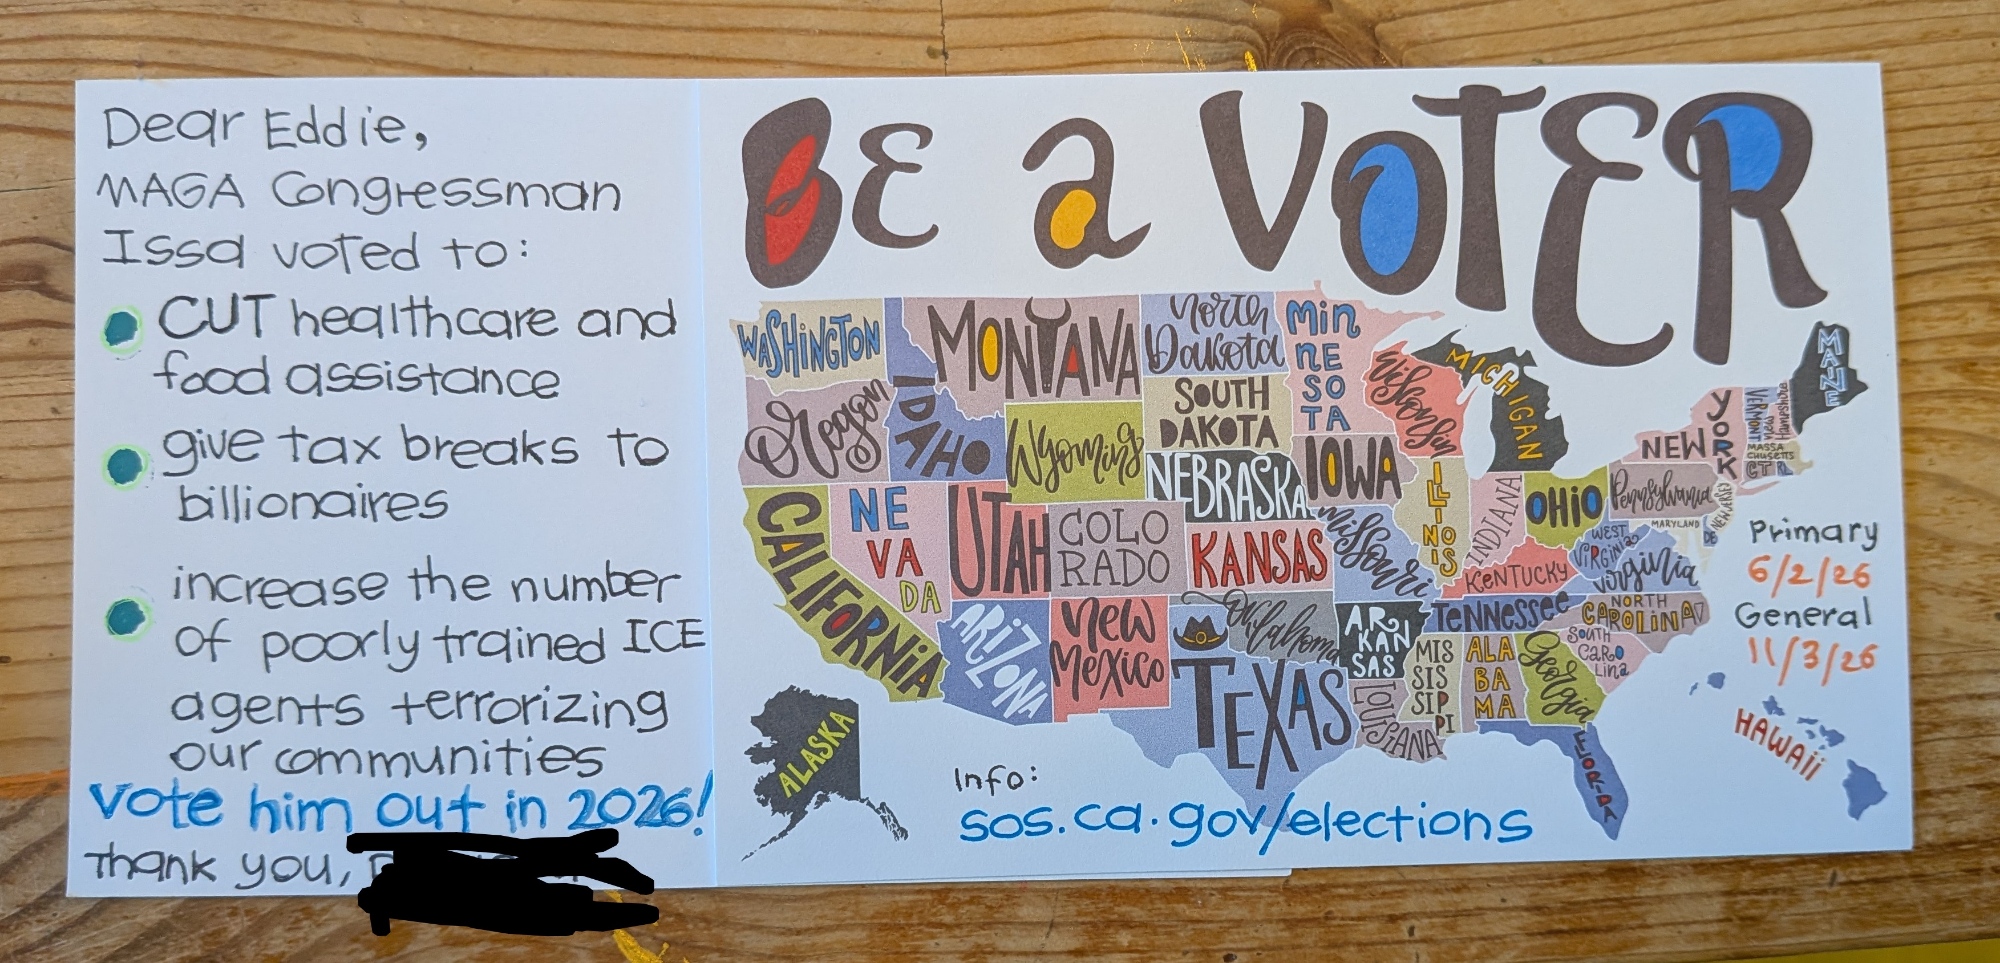 Dear Eddie,
MAGA Congressman
Issa voted to:
CUT healthcare and
food assistance
give tax breaks to
billionaires
increase the number
of poorly trained ICE
agents terrorizing
our communities
Vote him out in 2026!
Thank you,
BE a VOTER
WASHINGTON
Oregon
CALIFORNIA
IDAHO
NE
VA
DA
MONTANA
Wyoming
UTAH
COLO
RADO
ARIZONA
New
Mexico
North
Dakota
SOUTH
DAKOTA
NEBRASKA
KANSAS
Oklahoma
TEXAS
Min
NE
SO
TA
IOWA
Missouri
AR
KAN
SAS
LOUISIANA
Wisconsin
ILLINOIS
MICHIGAN
INDIANA
OHIO
KENTUCKY
TENNESSEE
MIS
SIS
SIP
PI
ALA
BA
MA
Georgia
FLORIDA
SOUTH
CARO
LINA
NORTH
CAROLINA
WEST
VIRGINIA
Virginia
Pennsylvania
MARYLAND
DE
NEW JERSEY
NEW
YORK
VERMONT
New Hampshire
MASSA
CHUSETTS
CT RI
MAINE
ALASKA
HAWAII
Primary
6/2/26
General
11/3/26
Info:
sos.ca.gov/elections